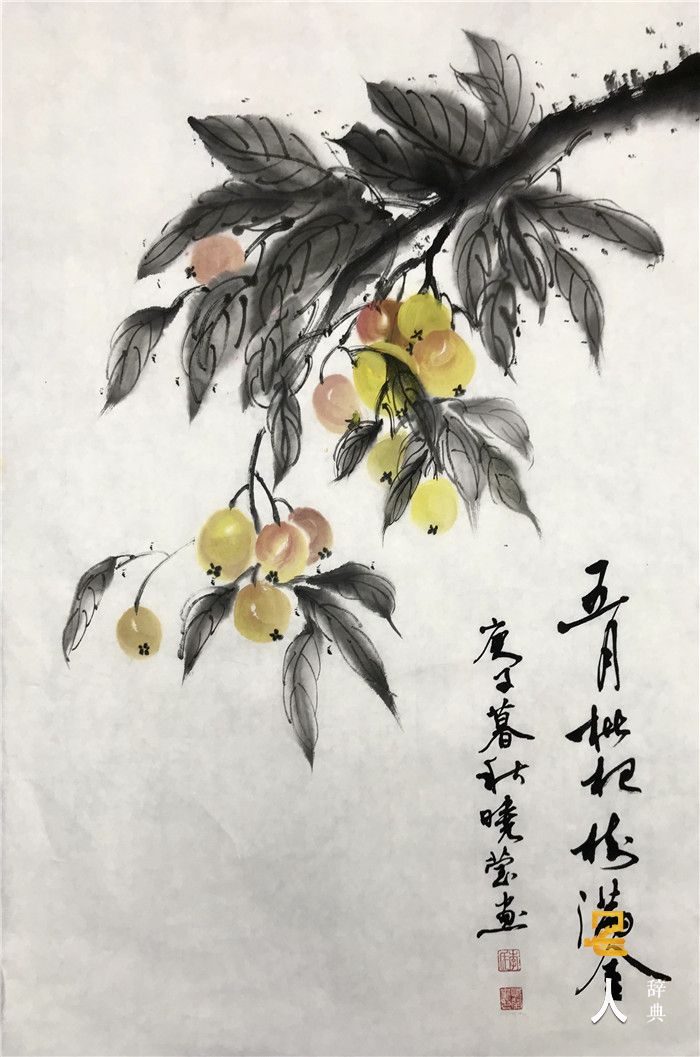 五月枇杷树满金
庚子暮秋曉莹画
名人辞典